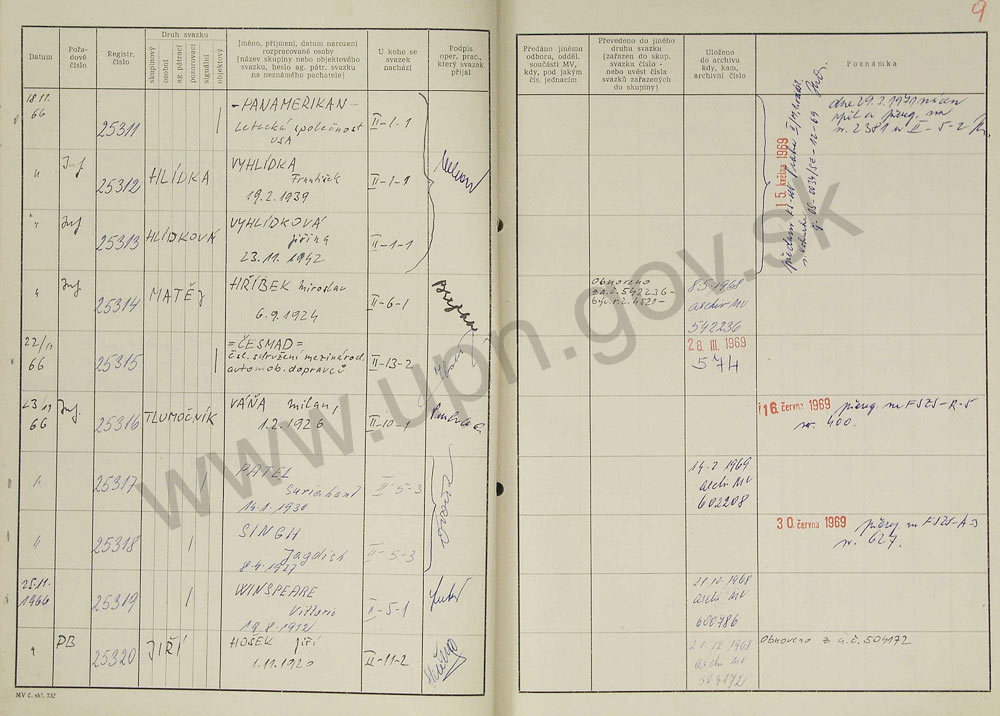 9
Datum
Pořa-
dové
číslo
Registr.
číslo
Druh svazku
skupinový
osobní
ag. pátrací
pozorovací
signální
objektový
Jméno, příjmení, datum narození
rozpracované osoby
(název skupiny nebo objektového
svazku, heslo ag. pátr. svazku
na neznámého pachatele)
U koho se
svazek
nachází
Podpis
oper. prac.,
který svazek
přijal
Předáno jinému
odboru, odděl.
součásti MV,
kdy, pod jakým
čís. jednacím
Převedeno do jiného
druhu svazku
(zařazen do skup.
svazku číslo -
nebo uvést čísla
svazků zařazených
do skupiny)
Uloženo
do archivu
kdy, kam,
archivní číslo
Poznámka
18/11.
66
25311
- PANAMERIKAN -
Letecká společnost
USA
II-1-1
15. května 1969
dne 29.3.1971
2381
II-5-2
"
Inf
25312
HLÍDKA
VYHLÍDKA
František
19.2.1939
II-1-1
"
Inf
25313
HLÍDKOVÁ
VYHLÍDKOVÁ
Jiřina
23.11.1942
II-1-1
"
Inf
25314
MATĚJ
HŘÍBEK Miroslav
6.9.1924
II-6-1
Obnoveno
z a.č. 542236-
8.5.1968
archiv MV
542236
22/11
66
25315
=ČESMAD=
čsl. sdružení mezinárod.
automob. dopravců
II-13-2
28. III. 1969
574
23/11
66
Inf.
25316
TLUMOČNÍK
VÁŇA Milan,
1.2.1926
II-10-1
16. června 1969
přereg. na FSZS-R-5
400.
"
25317
PATEL
14.1.1930
II-5-3
14.2.1969
archiv MV
602208
"
25318
SINGH
Jagdish
8.4.1927
II-5-3
30. června 1969
přereg. na FSZS-A-3
627.
25.11.
1966
25319
WINSPEARE
Vittorio
19.8.1912
II-5-1
21.10.1968
archiv MV
600786
"
PB
25320
JIŘÍ
HOŠEK Jiří
1.11.1920
II-11-2
20.12.1968
archiv MV
504172
Obnoveno z a.č. 504172
MV č. skl. 732
www.upn.gov.sk